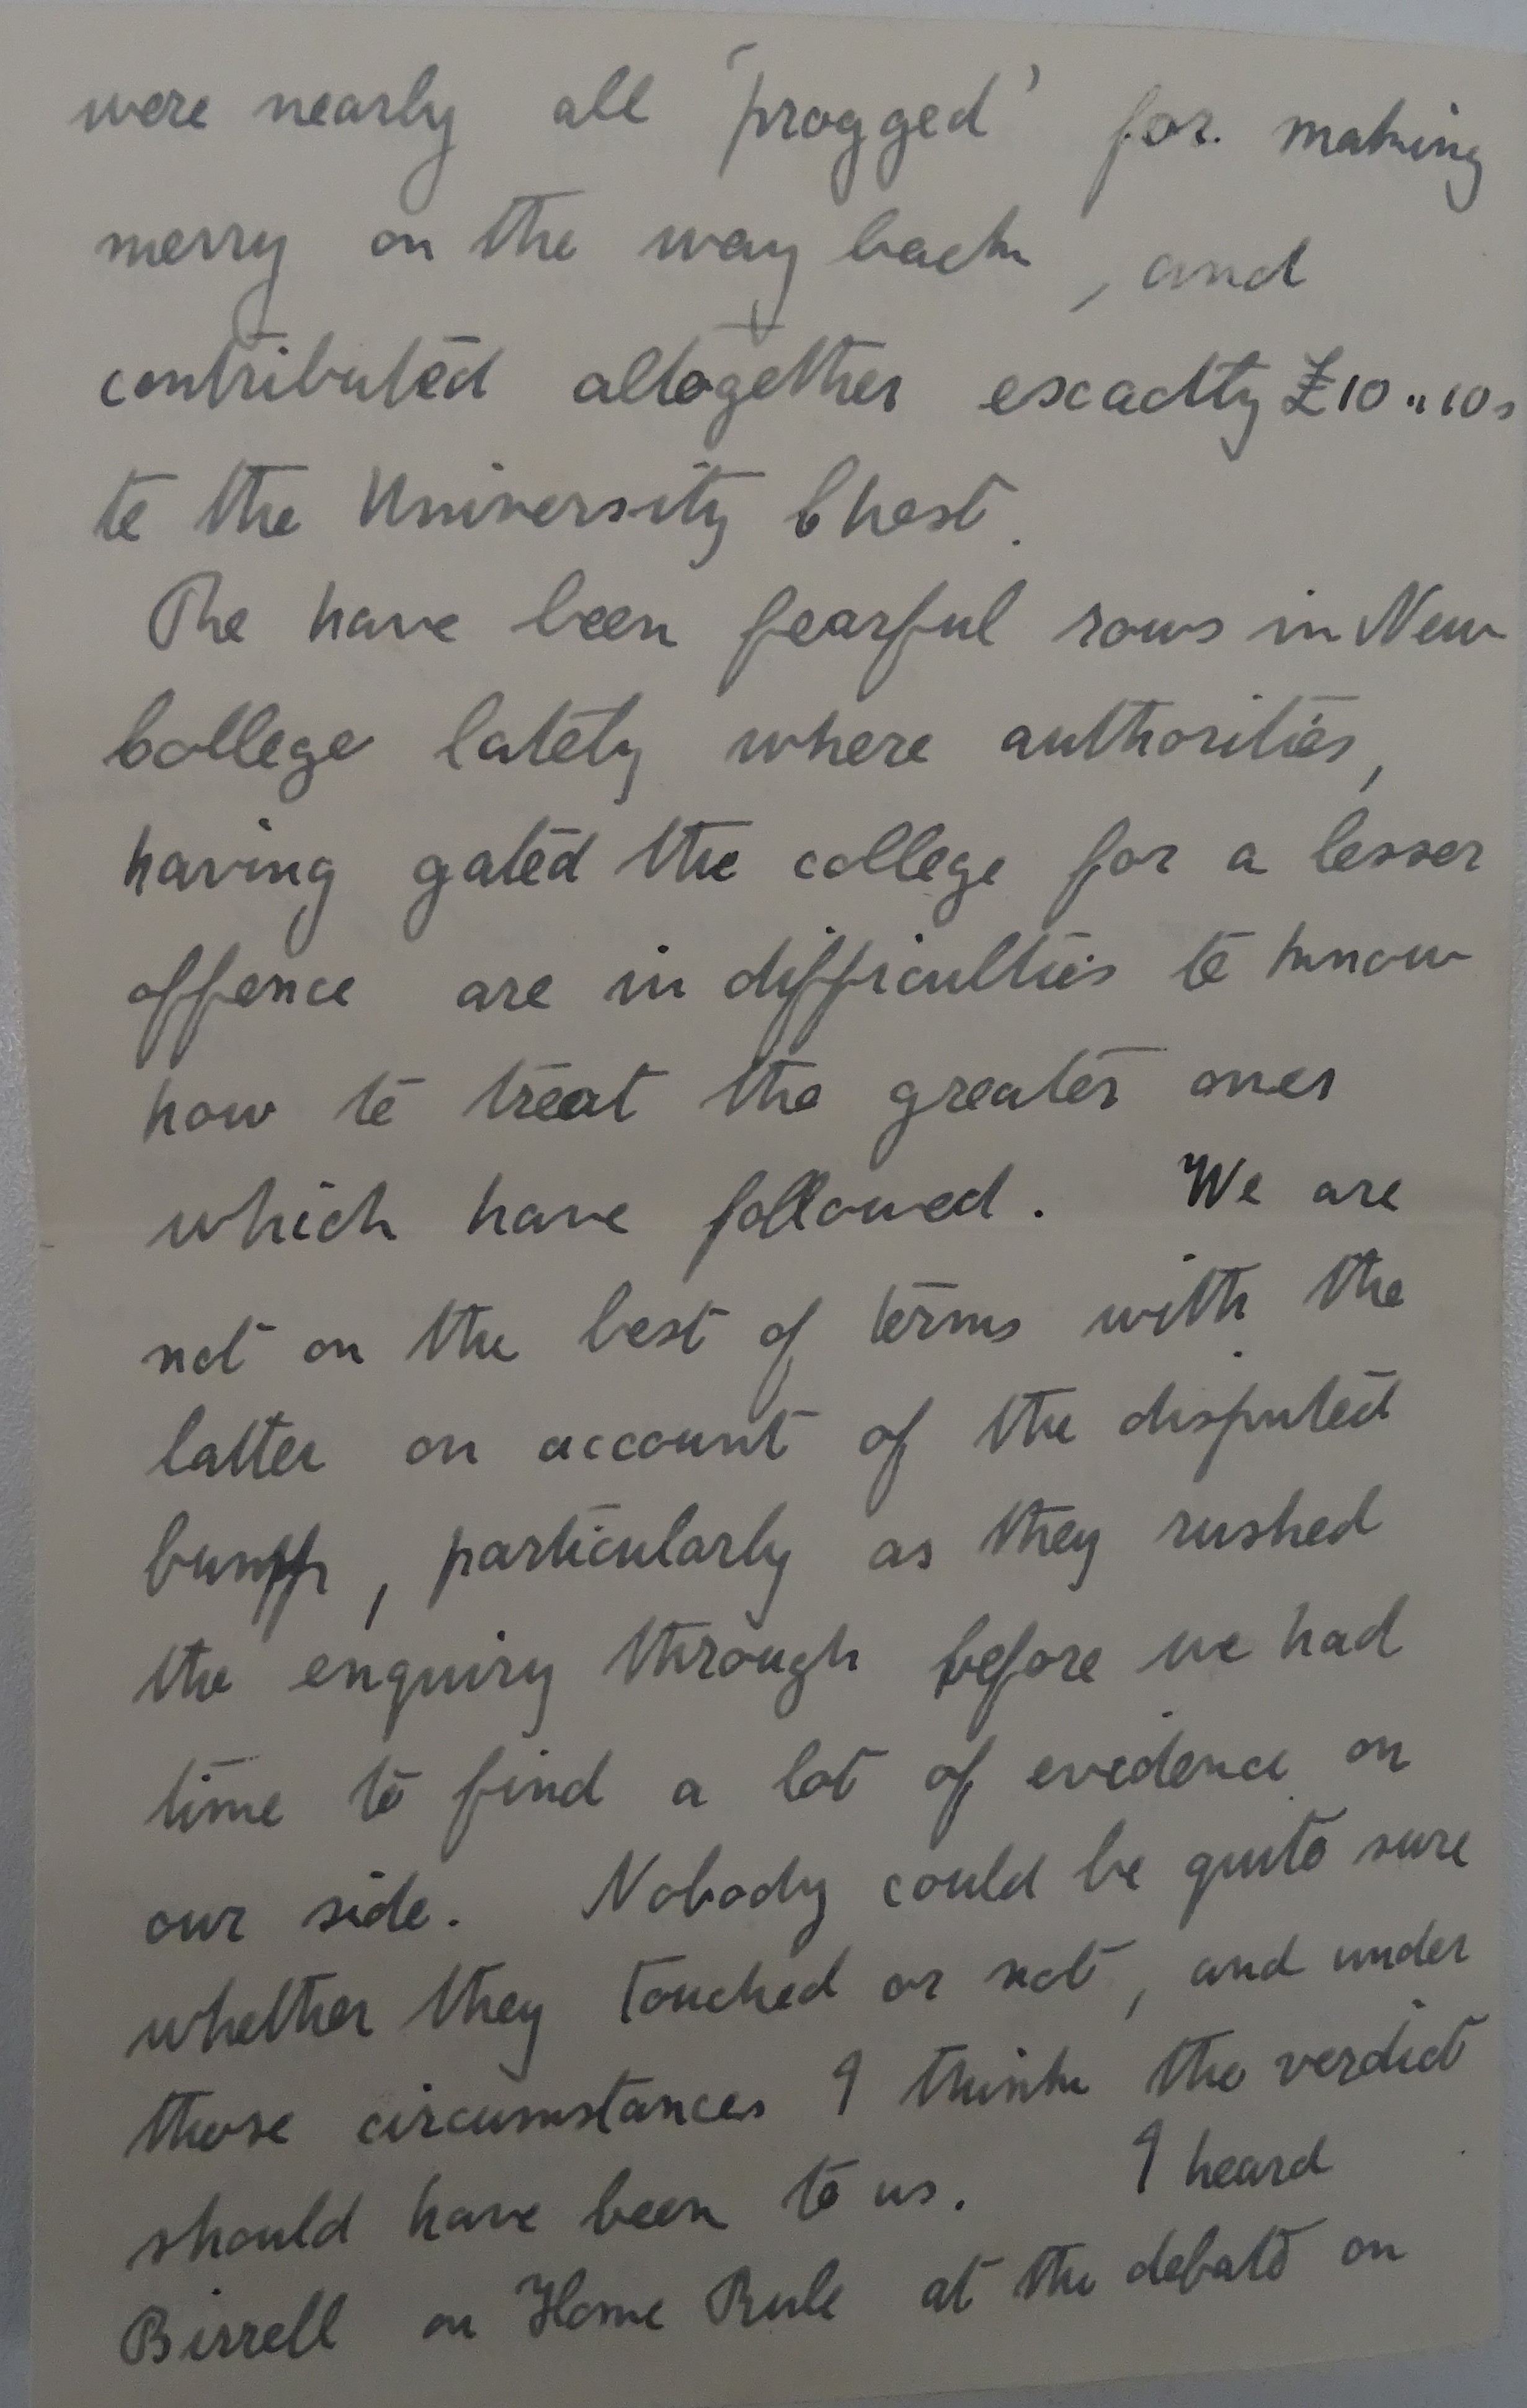 were nearly all 'progged' for making
merry on the way back, and
contributed altogether exactly £10 " 10s
to the University Chest.
The have been fearful rows in New
College lately where authorities,
having gated the college for a lesser
offence are in difficulties to know
how to treat the greater ones
which have followed. We are
not on the best of terms with the
latter on account of the disputed
bump, particularly as they rushed
the enquiry through before we had
time to find a lot of evidence on
our side. Nobody could be quite sure
whether they touched or not, and under
those circumstances I think the verdict
should have been to us. I heard
Birrell on Home Rule at the debate on